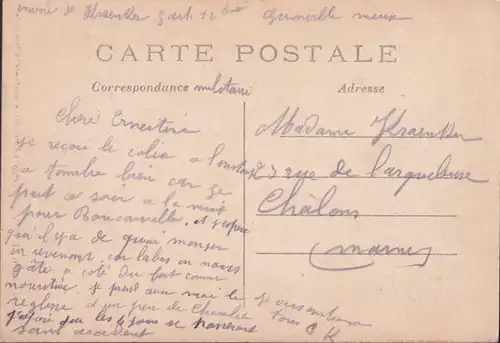 envoi de Kraenker
CARTE POSTALE
Correspondance militaire
Adresse
Chère Ernestine
je reçois le colis a l'instant
ça tombe bien car je
part a soir a la nuit
pour et j'espère
qu'il y a de quoi manger
en revenant, car labas on nous
gâte a coté du fort comme
nourriture. je prend avec moi le
réglisse et un peu de Chocolat
j'espère que les 6 jours se passeront
sans accident
je vous embrasse
tous
Madame Kraenker
23 rue de l'arquebuse
Châlons
(Marne)